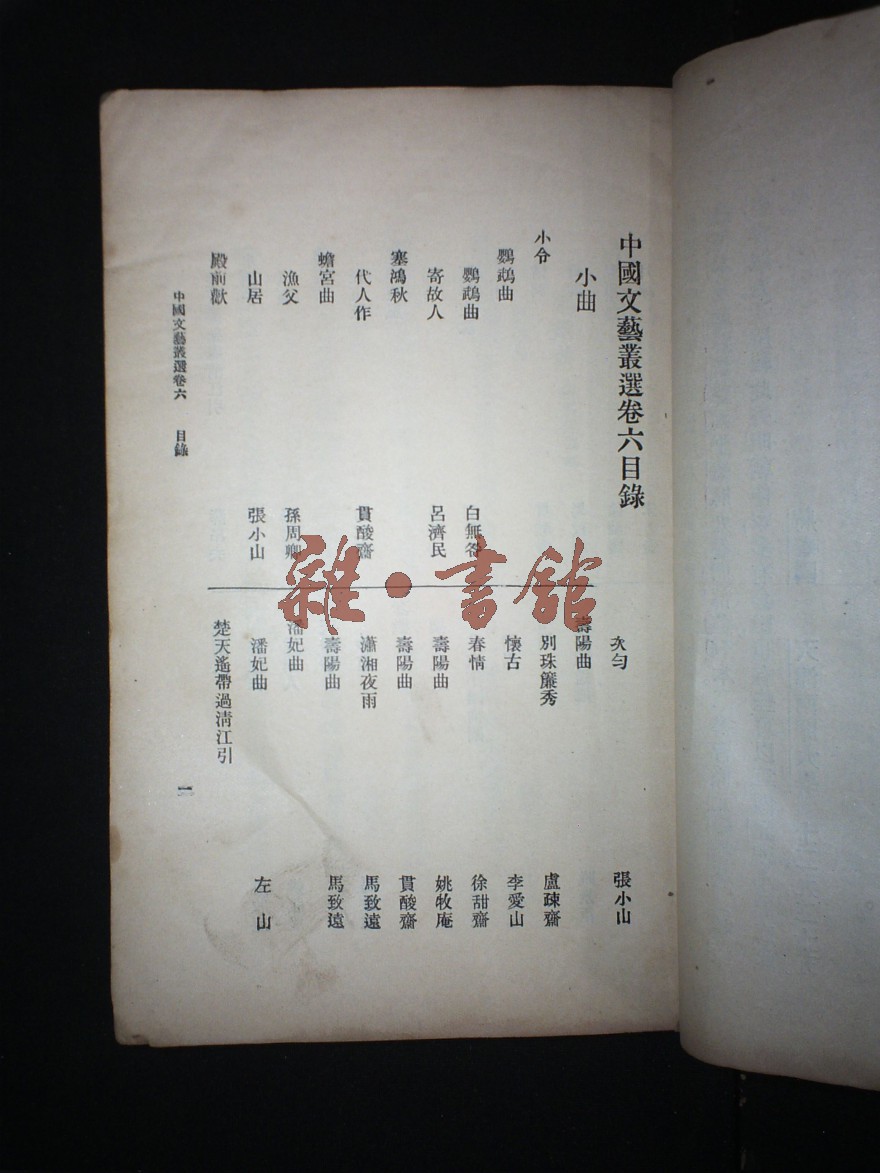 中國文藝叢選卷六目錄
小曲
小令
鸚鵡曲
鸚鵡曲 白無咎
寄故人 呂濟民
塞鴻秋
代人作 貫酸齋
蟾宮曲
漁父 孫周卿
山居 張小山
殿前歡
次勻 張小山
壽陽曲
別珠簾秀 盧疎齋
懷古 李愛山
春情 徐甜齋
壽陽曲 姚牧庵
壽陽曲 貫酸齋
瀟湘夜雨 馬致遠
壽陽曲 馬致遠
潘妃曲
潘妃曲 左山
楚天遙帶過清江引
中國文藝叢選卷六 目錄
一
雜·書館